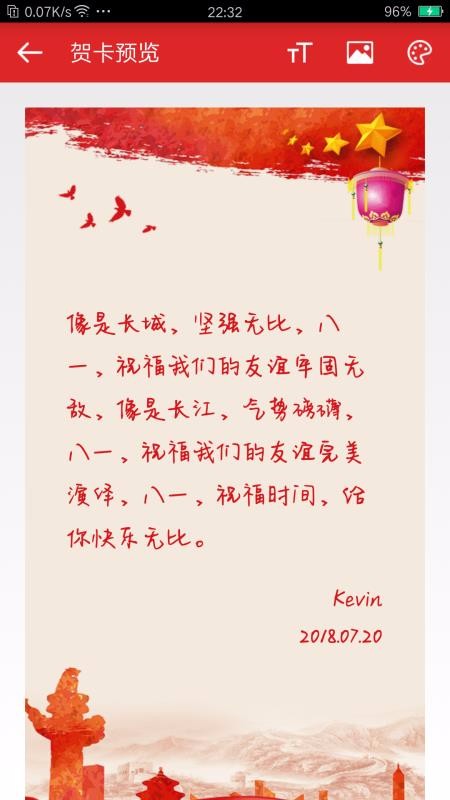 0.07K/s
22:32
96%
贺卡预览
TT
像是长城，坚强无比，八
一，祝福我们的友谊牢固无
敌，像是长江，气势磅礴，
八一，祝福我们的友谊完美
演绎，八一，祝福时间，给
你快乐无比。
Kevin
2018.07.20